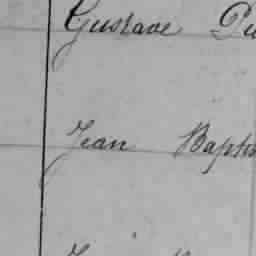 Gustave Du
Jean Baptis